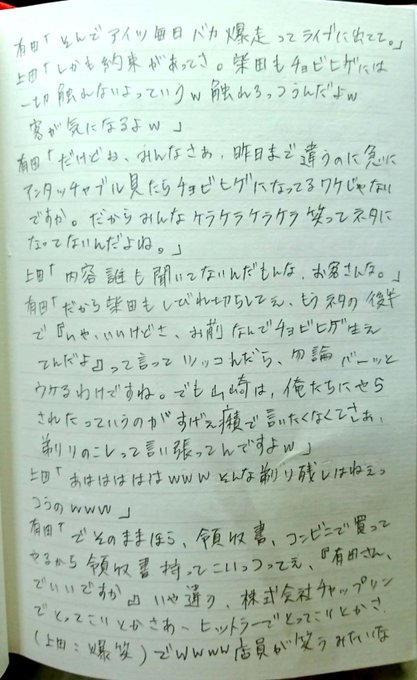 有田「そんでアイツ毎日バカ爆走ってライブに出てて。」
上田「しかも約束があってさ。柴田もチョビヒゲには
一切触れないよっていうw 触れろっつうんだよw
客が気になるよw 」
有田「だけどね、みんなさあ、昨日まで違うのに急に
アンタッチャブル見たらチョビヒゲになってるワケじゃない
ですか。だからみんなケラケラケラケラ笑ってネタに
なってないんだよね。」
上田「内容誰も聞いてないんだもんな、お客さんな。」
有田「だから柴田もしびれ切らしてぇ、もうネタの後半
で『いや、いいけどさ、お前なんでチョビヒゲ生え
てんだよ』って言ってツッコんだら、勿論バーーッと
ウケるわけですね。でも山崎は、俺たちにやら
されたっていうのがすげえ癪で言いたくなくてさぁ、
剃りのこしって言い張ってんですよw 」
上田「あはははははwww そんな剃り残しはねえっ
つうのwww 」
有田「でそのままほら、領収書、コンビニで買って
やるから領収書持ってこいっつってぇ、『有田さん、
でいいですか』いや違う、株式会社チャップリン
でとってこいとかさあ、ヒットラーでとってこいとかさ
(上田:爆笑)でwwww店員が笑うみたいな